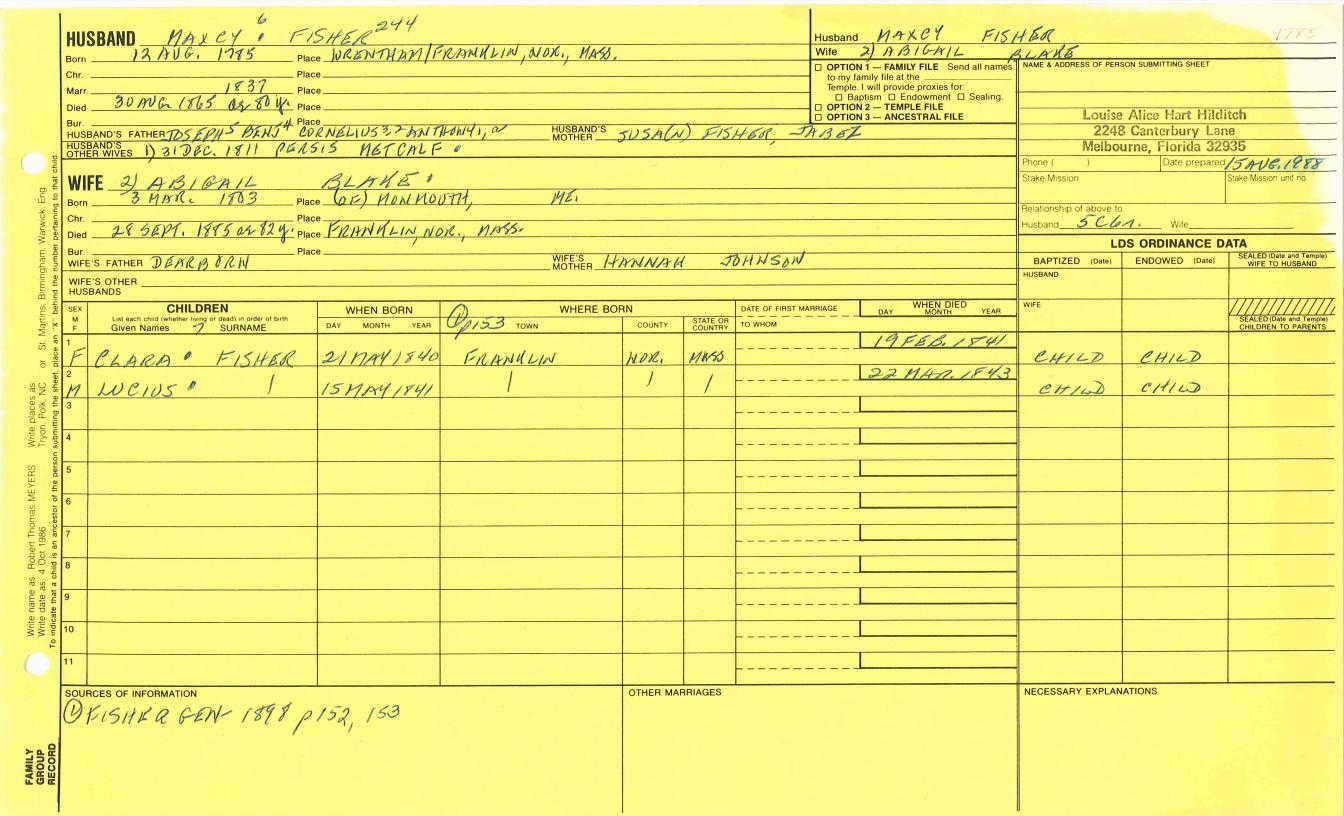 HUSBAND MAXCY 6 FISHER 244
Born 12 AUG. 1785 Place WRENTHAM/FRANKLIN, NOR., MASS.
Chr. Place
Marr. 1837 Place
Died 30 AUG. 1865 Place
Bur. Place
HUSBAND'S FATHER JOSEPH 5 BENJ 4 CORNELIUS 3, 2 ANTHONY 1, 2 HUSBAND'S MOTHER SUSA(N) FISHER, JABEZ
HUSBAND'S OTHER WIVES 1) 31 DEC. 1811 PERSIS METCALF
WIFE 2) ABIGAIL BLAKE
Born 3 MAR. 1803 Place (OF) MONMOUTH, ME.
Chr. Place
Died 28 SEPT. 1885 Place FRANKLIN, NOR., MASS.
Bur. Place
WIFE'S FATHER DEARBORN WIFE'S MOTHER HANNAH JOHNSON
WIFE'S OTHER HUSBANDS
Husband MAXCY FISHER 1785
Wife 2) ABIGAIL BLAKE
☐ OPTION 1 — FAMILY FILE Send all names
to my family file at the
Temple. I will provide proxies for:
☐ Baptism ☐ Endowment ☐ Sealing.
☐ OPTION 2 — TEMPLE FILE
☐ OPTION 3 — ANCESTRAL FILE
NAME & ADDRESS OF PERSON SUBMITTING SHEET
Louise Alice Hart Hilditch
2248 Canterbury Lane
Melbourne, Florida 32935
Phone ( ) Date prepared 15 AUG. 1988
Stake Mission Stake Mission unit no.
Relationship of above to
Husband Wife
LDS ORDINANCE DATA
BAPTIZED (Date) ENDOWED (Date) SEALED (Date and Temple) WIFE TO HUSBAND
HUSBAND
WIFE
SEALED (Date and Temple) CHILDREN TO PARENTS
SEX M F
CHILDREN
List each child (whether living or dead) in order of birth
Given Names 7 SURNAME
WHEN BORN
DAY MONTH YEAR
WHERE BORN
① p153 TOWN COUNTY STATE OR COUNTRY
DATE OF FIRST MARRIAGE
TO WHOM
WHEN DIED
DAY MONTH YEAR
1 F CLARA FISHER 21 MAY 1840 FRANKLIN NOR. MASS 19 FEB. 1841 CHILD CHILD
2 M LUCIUS 15 MAY 1841 22 MAR. 1843 CHILD CHILD
3
4
5
6
7
8
9
10
11
SOURCES OF INFORMATION
① FISHER GEN 1898 p152, 153
OTHER MARRIAGES
NECESSARY EXPLANATIONS
FAMILY GROUP RECORD
Write name as Robert Thomas MEYERS Write places as Tryon, Polk, NC or St. Martins, Birmingham, Warwick, Eng.
Write date as 4 Oct 1986
To indicate that a child is an ancestor of the person submitting the sheet, place an "X" behind the number pertaining to that child.